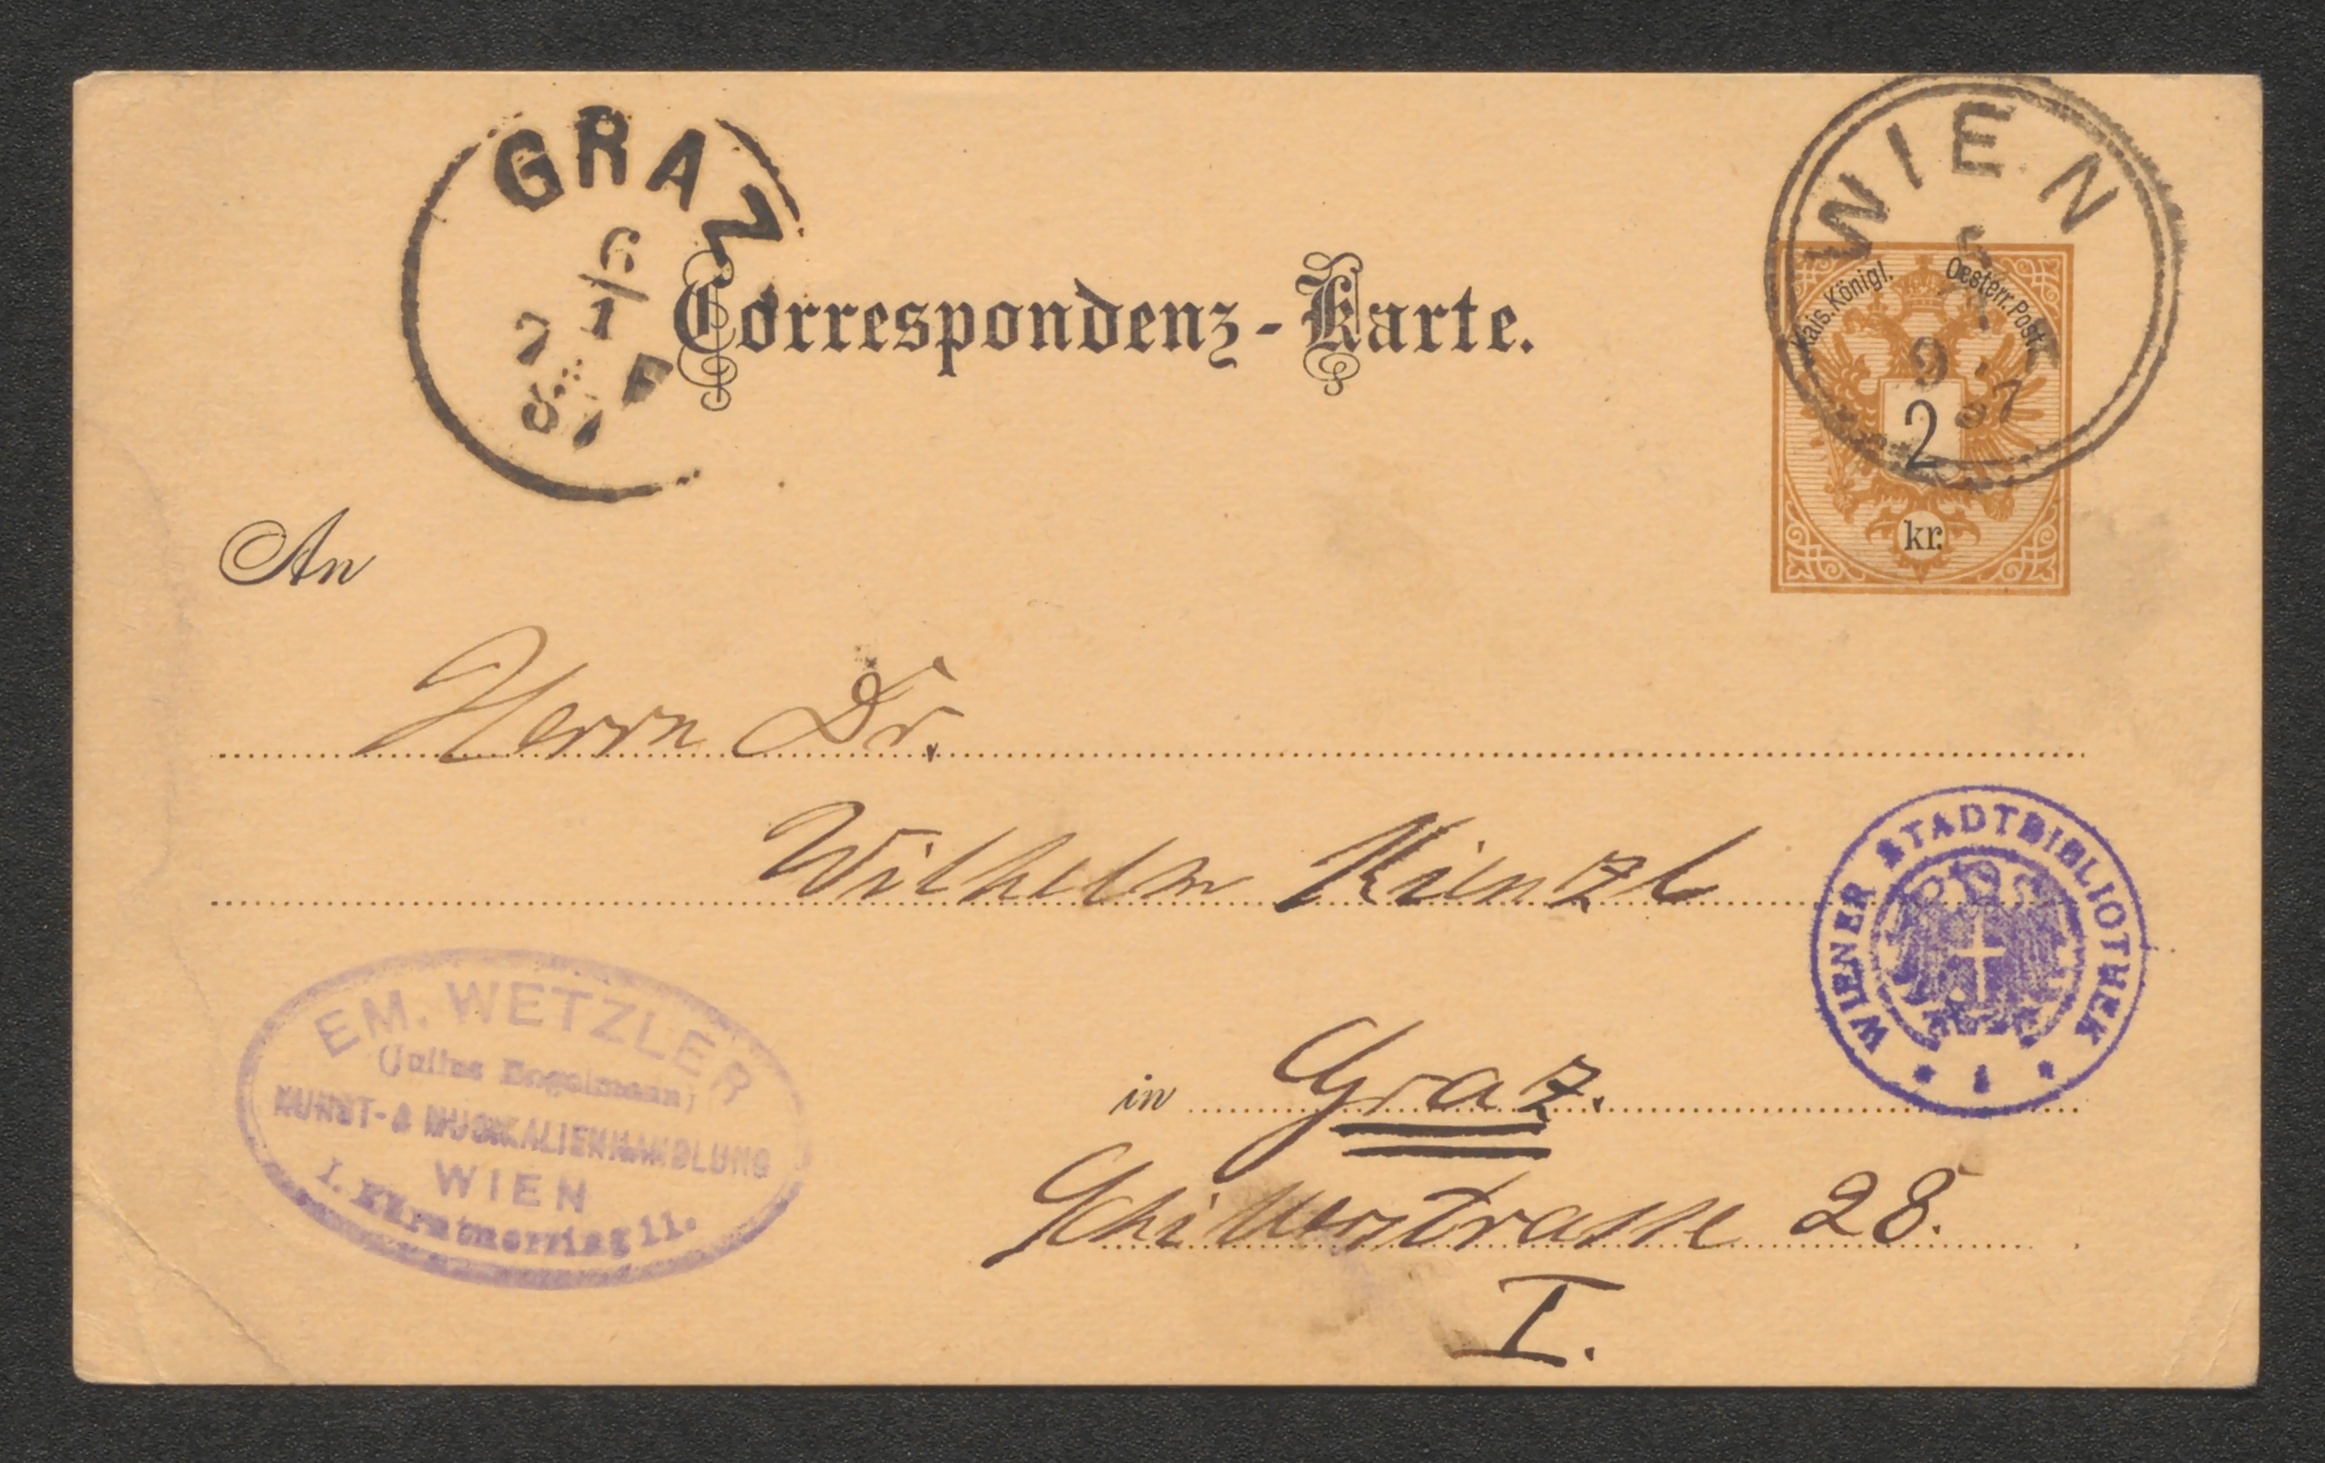 GRAZ
6
1
7
87
F
WIEN
9
87
Correspondenz-Karte.
Kais. Königl. Oesterr. Post.
2
kr.
An
Herrn Dr.
Wilhelm Kienzl
WIENER STADTBIBLIOTHEK
in Graz.
Schillerstrasse 28.
I.
EM. WETZLER
(Julius Engelmann)
KUNST- & MUSIKALIENHANDLUNG
WIEN
I. Kärntnerring 11.